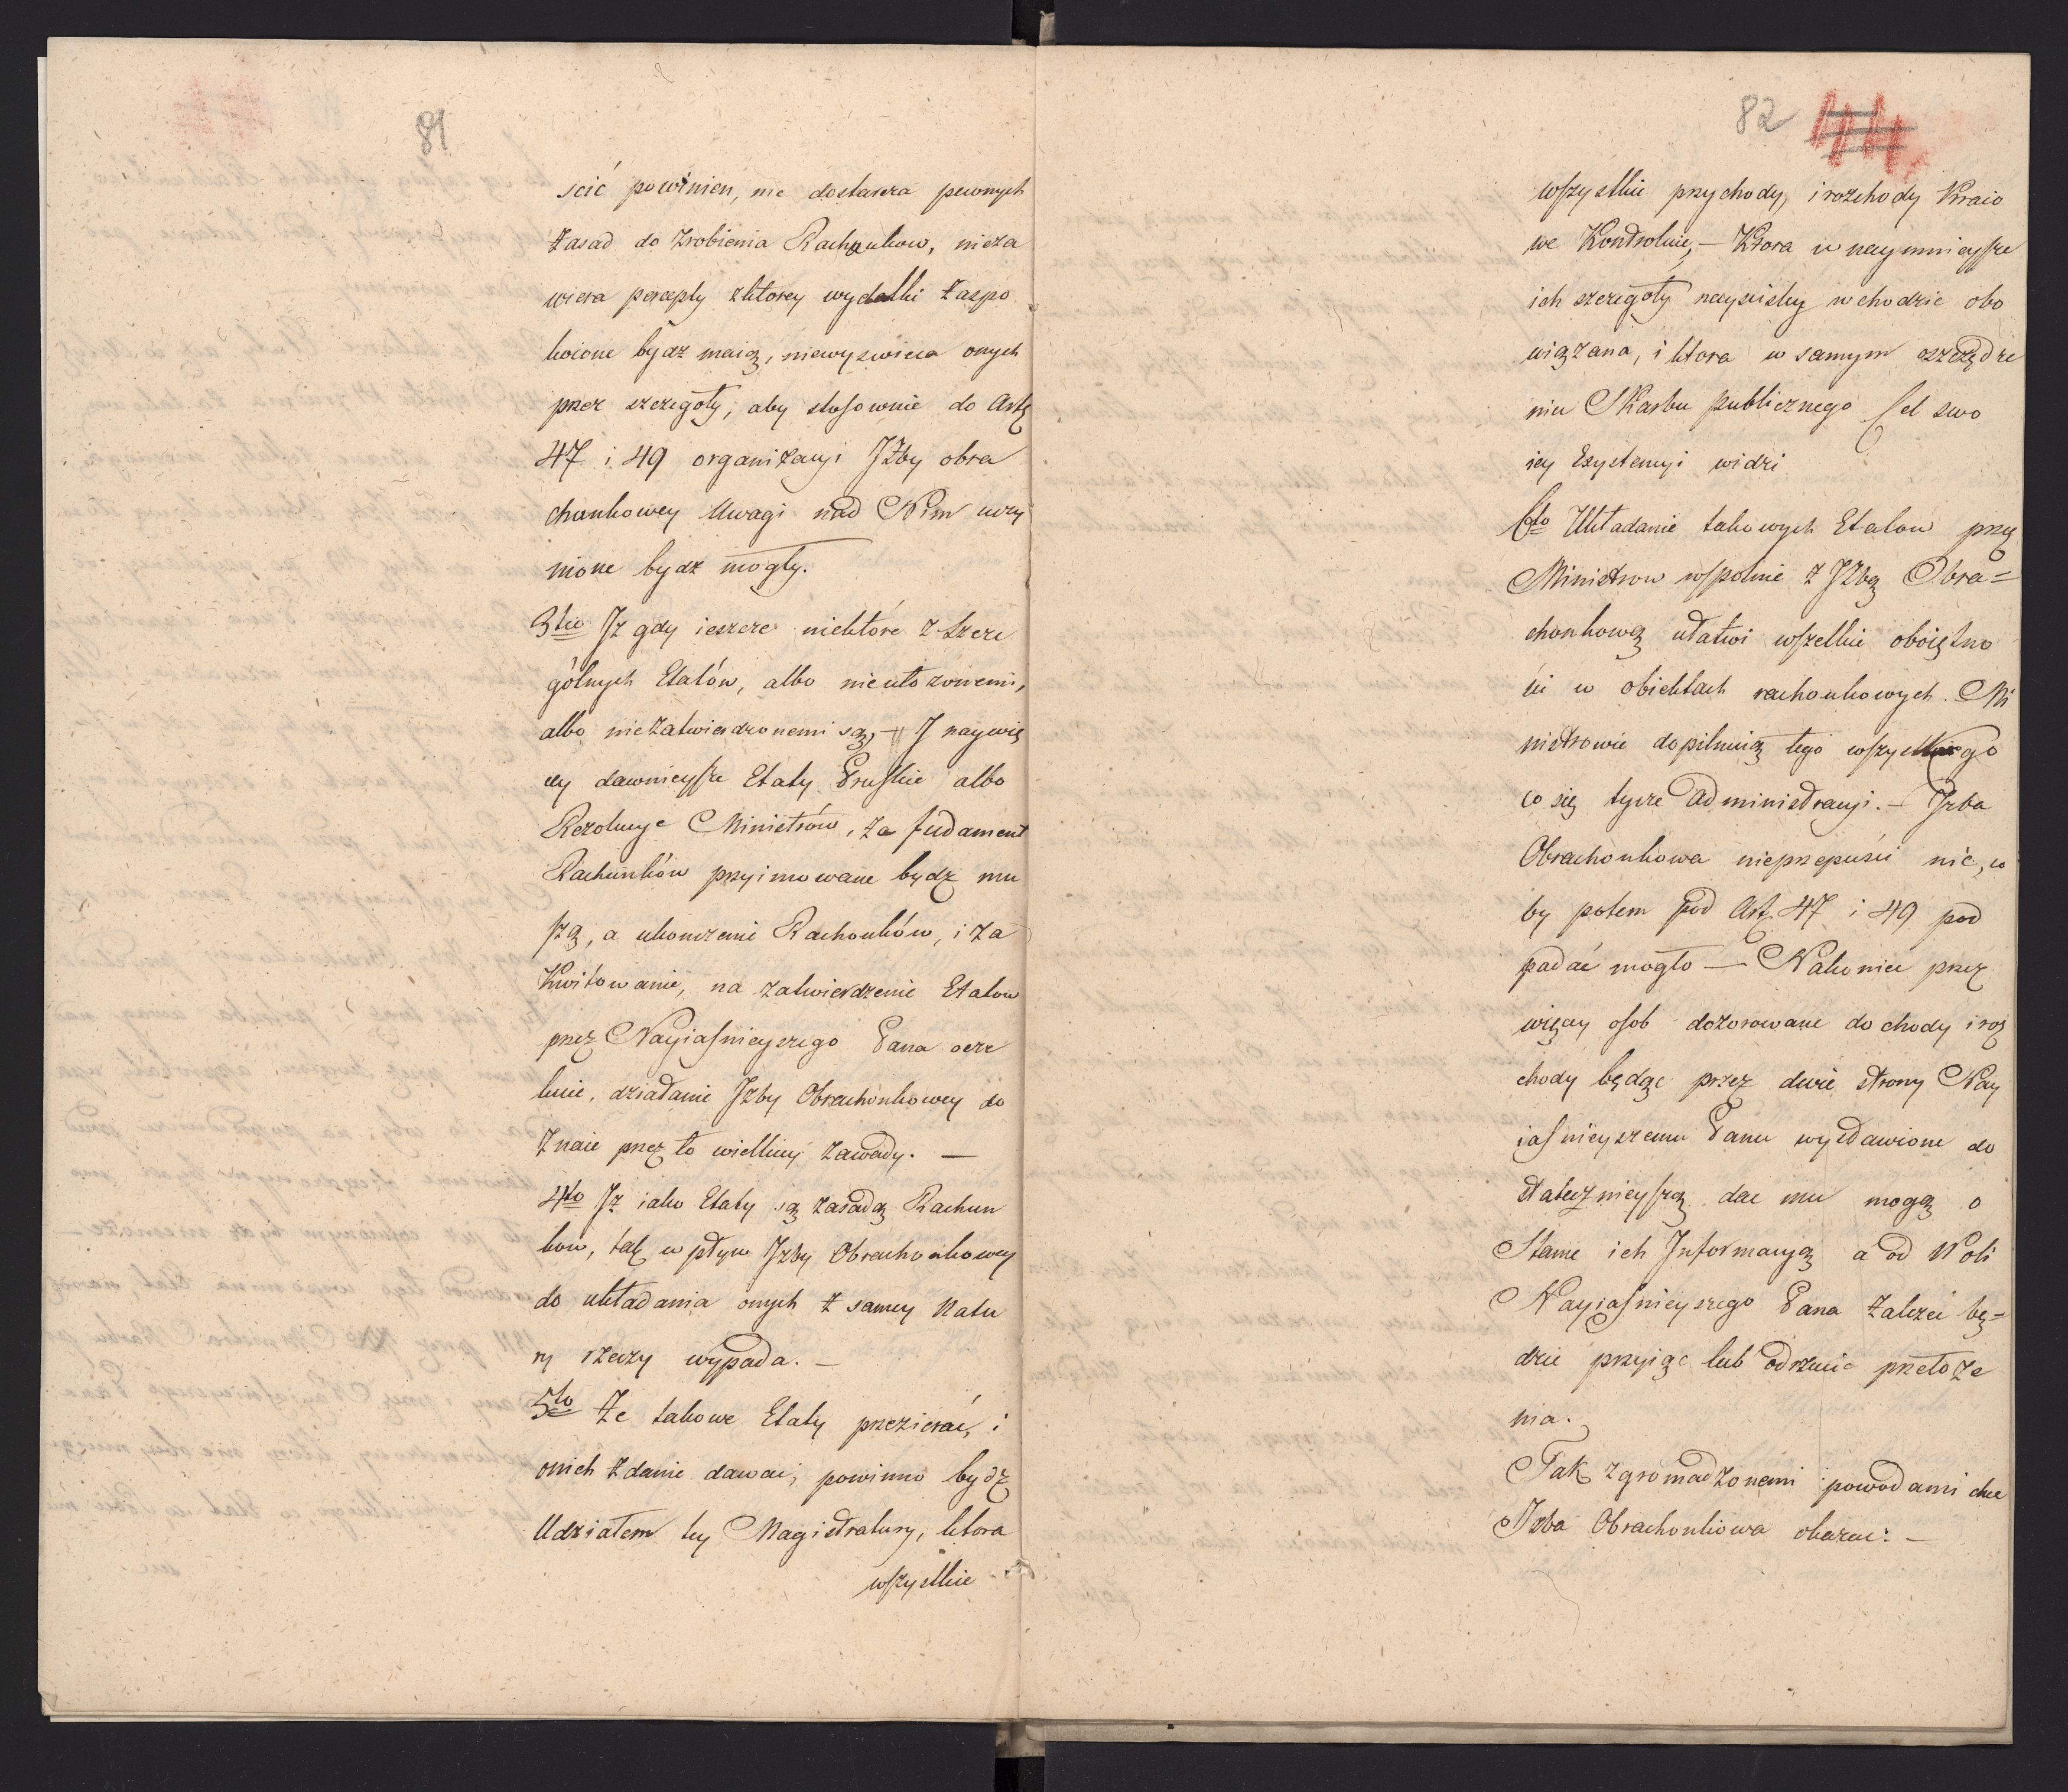 81
scić powinien, nie dostarcza pewnych
Zasad do zrobienia Rachunkow, nieza
wiera percepty zktorey wydatki Zaspo
koione bydz maią, niewyswieca onych
przez szczegoły, aby stosownie do Art.
47 i 49 organizacyi JZby obra
chonkowey Uwagi nad Nim uczy
nione bydz mogły.
3tio Jz gdy ieszcze niektóre z Szcze
gólnych Etatów, albo nieułozonemi,
albo niezatwierdzonemi są, — J naywię
cy dawnieysze Etaty Pruskie albo
Rezolucye Ministrów, za fudament
Rachunków przyimowane będz mu
szą, a ukonczenie Rachonków, i Za
Kwitowanie, na zatwierdzenie Etatow
przez Nayiasnieyszego Pana ocze
kuie, działanie Jzby Obrachonkowey do
Znaie przez to wielkiey zawady. —
4to Jz iako Etaty są zasadą Rachun
kow, tak wpływ Jzby Obrachonkowey
do układania onych z samey Natu
ry rzeczy wypada. —
5to Ze takowe Etaty przezierać, i
onich zdanie dawać, powinno bydz
Udziałem tey Magistratury, ktora
wszystkie
82
wszystkie przychody, i rozchody Kraio
we Kontroluie, — Ktora w naymnieysze
ich szczegoły nayscisley wchodzic obo
wiązana, i ktora w samym oszczędze
niu Skarbu publicznego Cel swo
iey Exystencyi widzi
6to Układanie takowych Etatow przez
Ministrow wspolnie z JZbą Obra=
chonkową ułatwi wszelkie oboiętno
ści w obiektach rachonkowych. Mi
nistrowie dopilnuią tego wszystkiego
co się tycze administracyi. — Jzba
Obrachonkowa nieprzepuści nic, co
by potem pod Art. 47 i 49 pod
padać mogło — Nakoniec przez
więcey osob dozorowane dochody i roz
chody będąc przez dwie strony Nay
iasnieyszemu Panu wystawione do
statecznieyszą dac mu mogą o
Stanie ich Jnformacyą a od Woli
Nayiasnieyszego Pana zalezeć bę=
dzie przyiąc lub odrzucic przełoże
nia.
Tak zgromadzonemi powodami chce
Jzba Obrachonkowa okazac: —